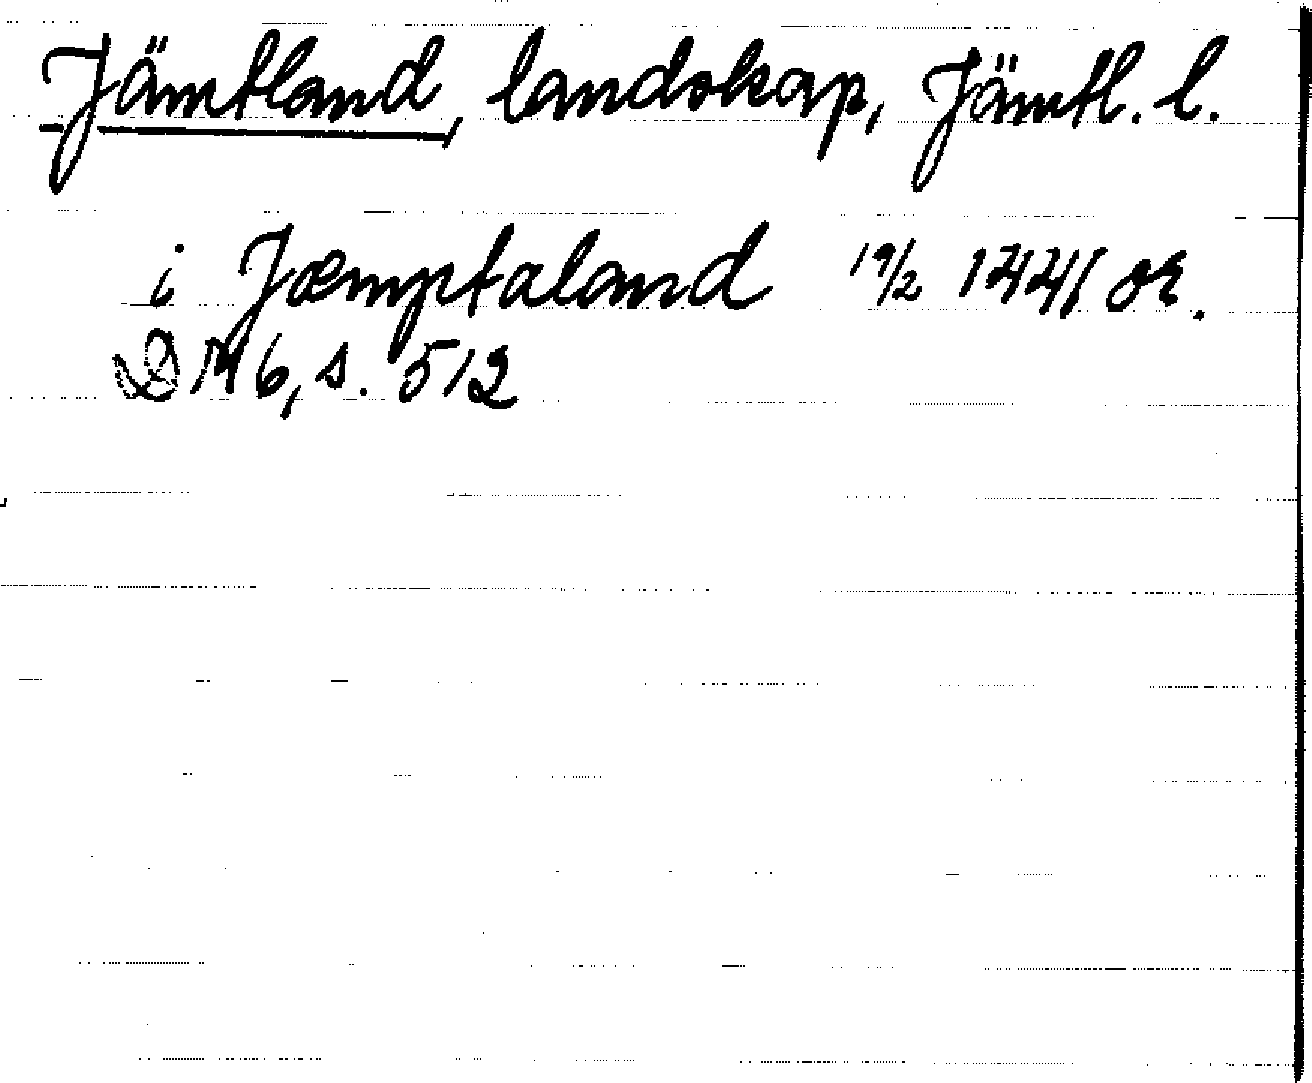 Jämtland, landskap, Jämtl. l.
i Jæmptaland 19/2 1441 or.
DN 6, s. 512